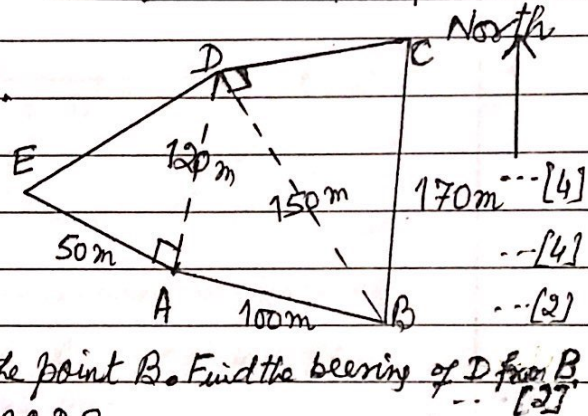 North
D
C
E
120m
150m
170m ---[4]
50m
---[4]
A
100m
B
---[2]
he point B. Find the beering of D from B
-- [2]